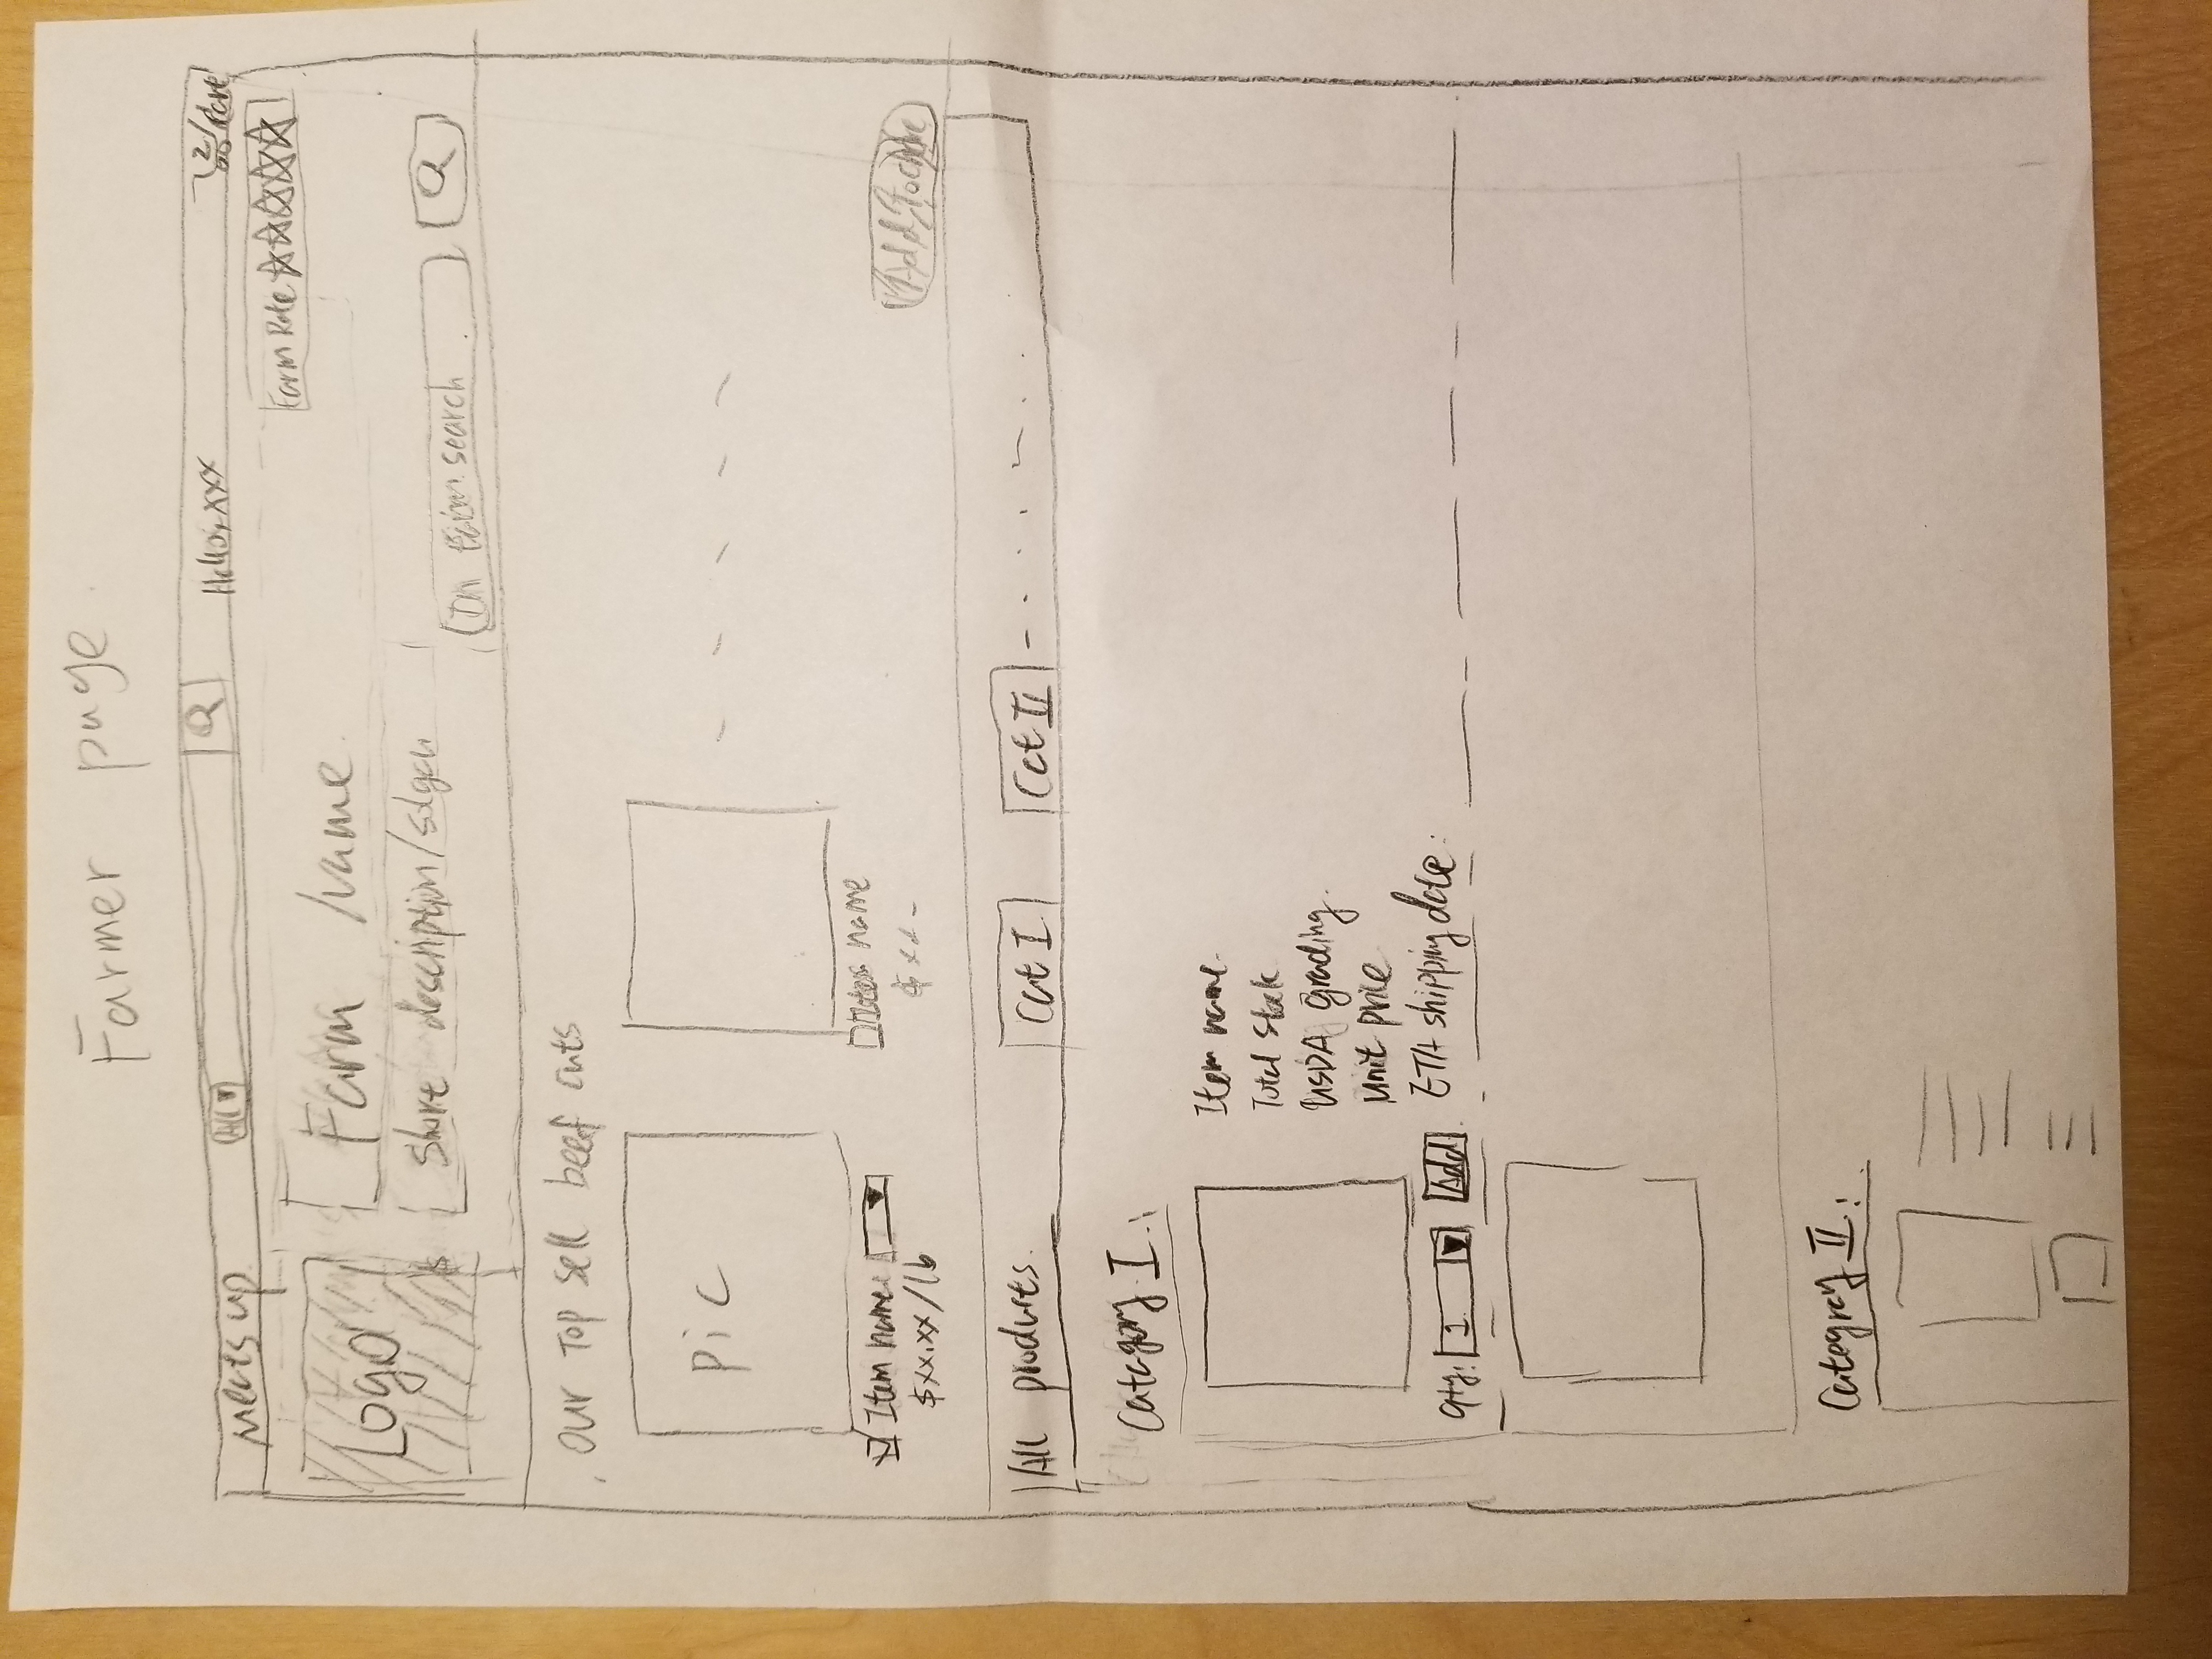 Farmer page.
Meatsup All Hello, xxx 2/Cart
Farm Rate
Logo
Farm Name
Short description/slogan
On farm search
Our Top sell beef cuts
pic
Item name
Item name
$xx.xx/lb
$xx-
Add to
All products.
Cat I
Cat II
Category I:
Item name.
Total Stock
USDA grading.
unit price
ETA shipping date:
qty: 1 Add
Categroy II: